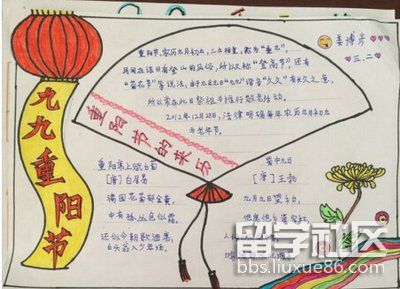 九九重阳节
重阳节的来历
重阳节,农历九月初九,二九相重,称为"重九"。
民间在该日有登山的风俗,所以又称"登高节"还有
"菊花节"等说法,由于九月九日"九九"谐音"久久"有长久之意,
所以常在此日祭祖与推行敬老活动。
2012年12月28日,法律明确每年农历九月初九
为老年节。
姜博
三.二
重阳席上赋白菊
[唐]白居易
满园花菊郁金黄,
中有孤丛色似霜。
还似今朝歌酒席,
白头翁入少年场。
蜀中九日
[唐]王勃
九月九日望乡台,
他席他乡送客杯。
留学社区
bbs.liuxue86.com